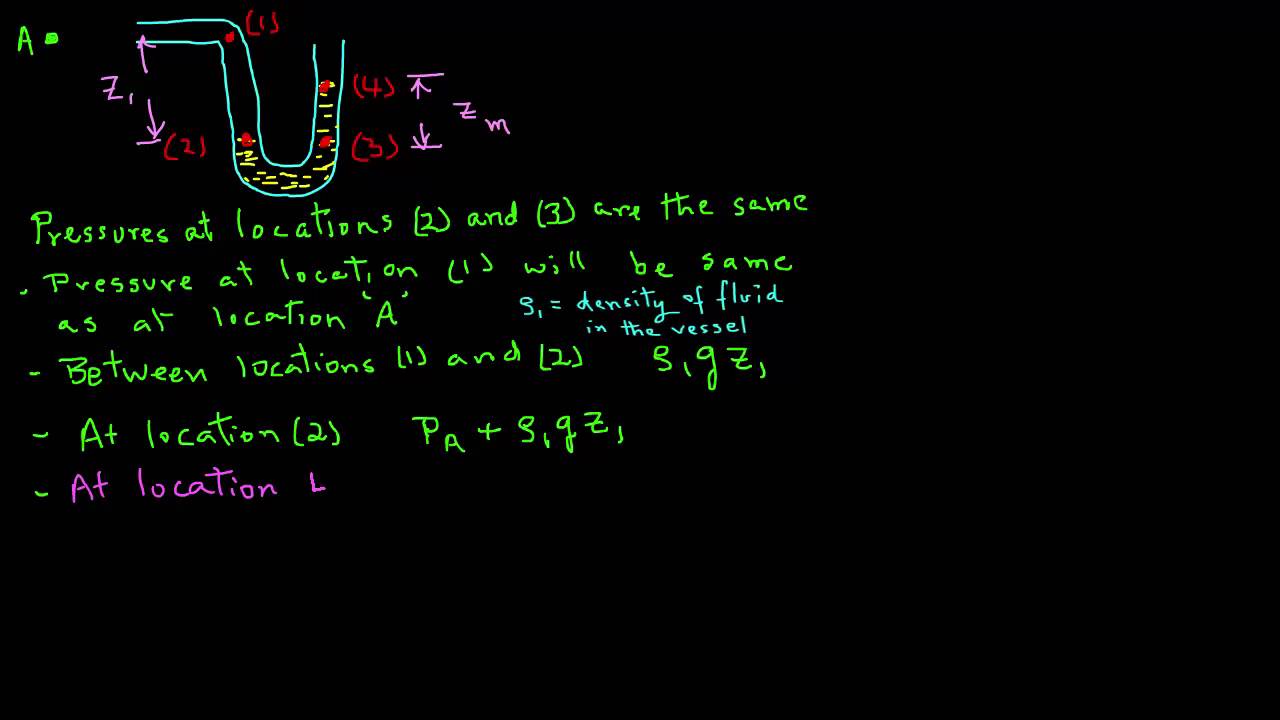 A
(1)
Z₁
(4)
Z m
(2)
(3)
Pressures at locations (2) and (3) are the same
. Pressure at location (1) will be same
as at location 'A'
ρ₁ = density of fluid
in the vessel
- Between locations (1) and (2) ρ₁gZ₁
- At location (2) P_A + ρ₁gZ₁
- At location